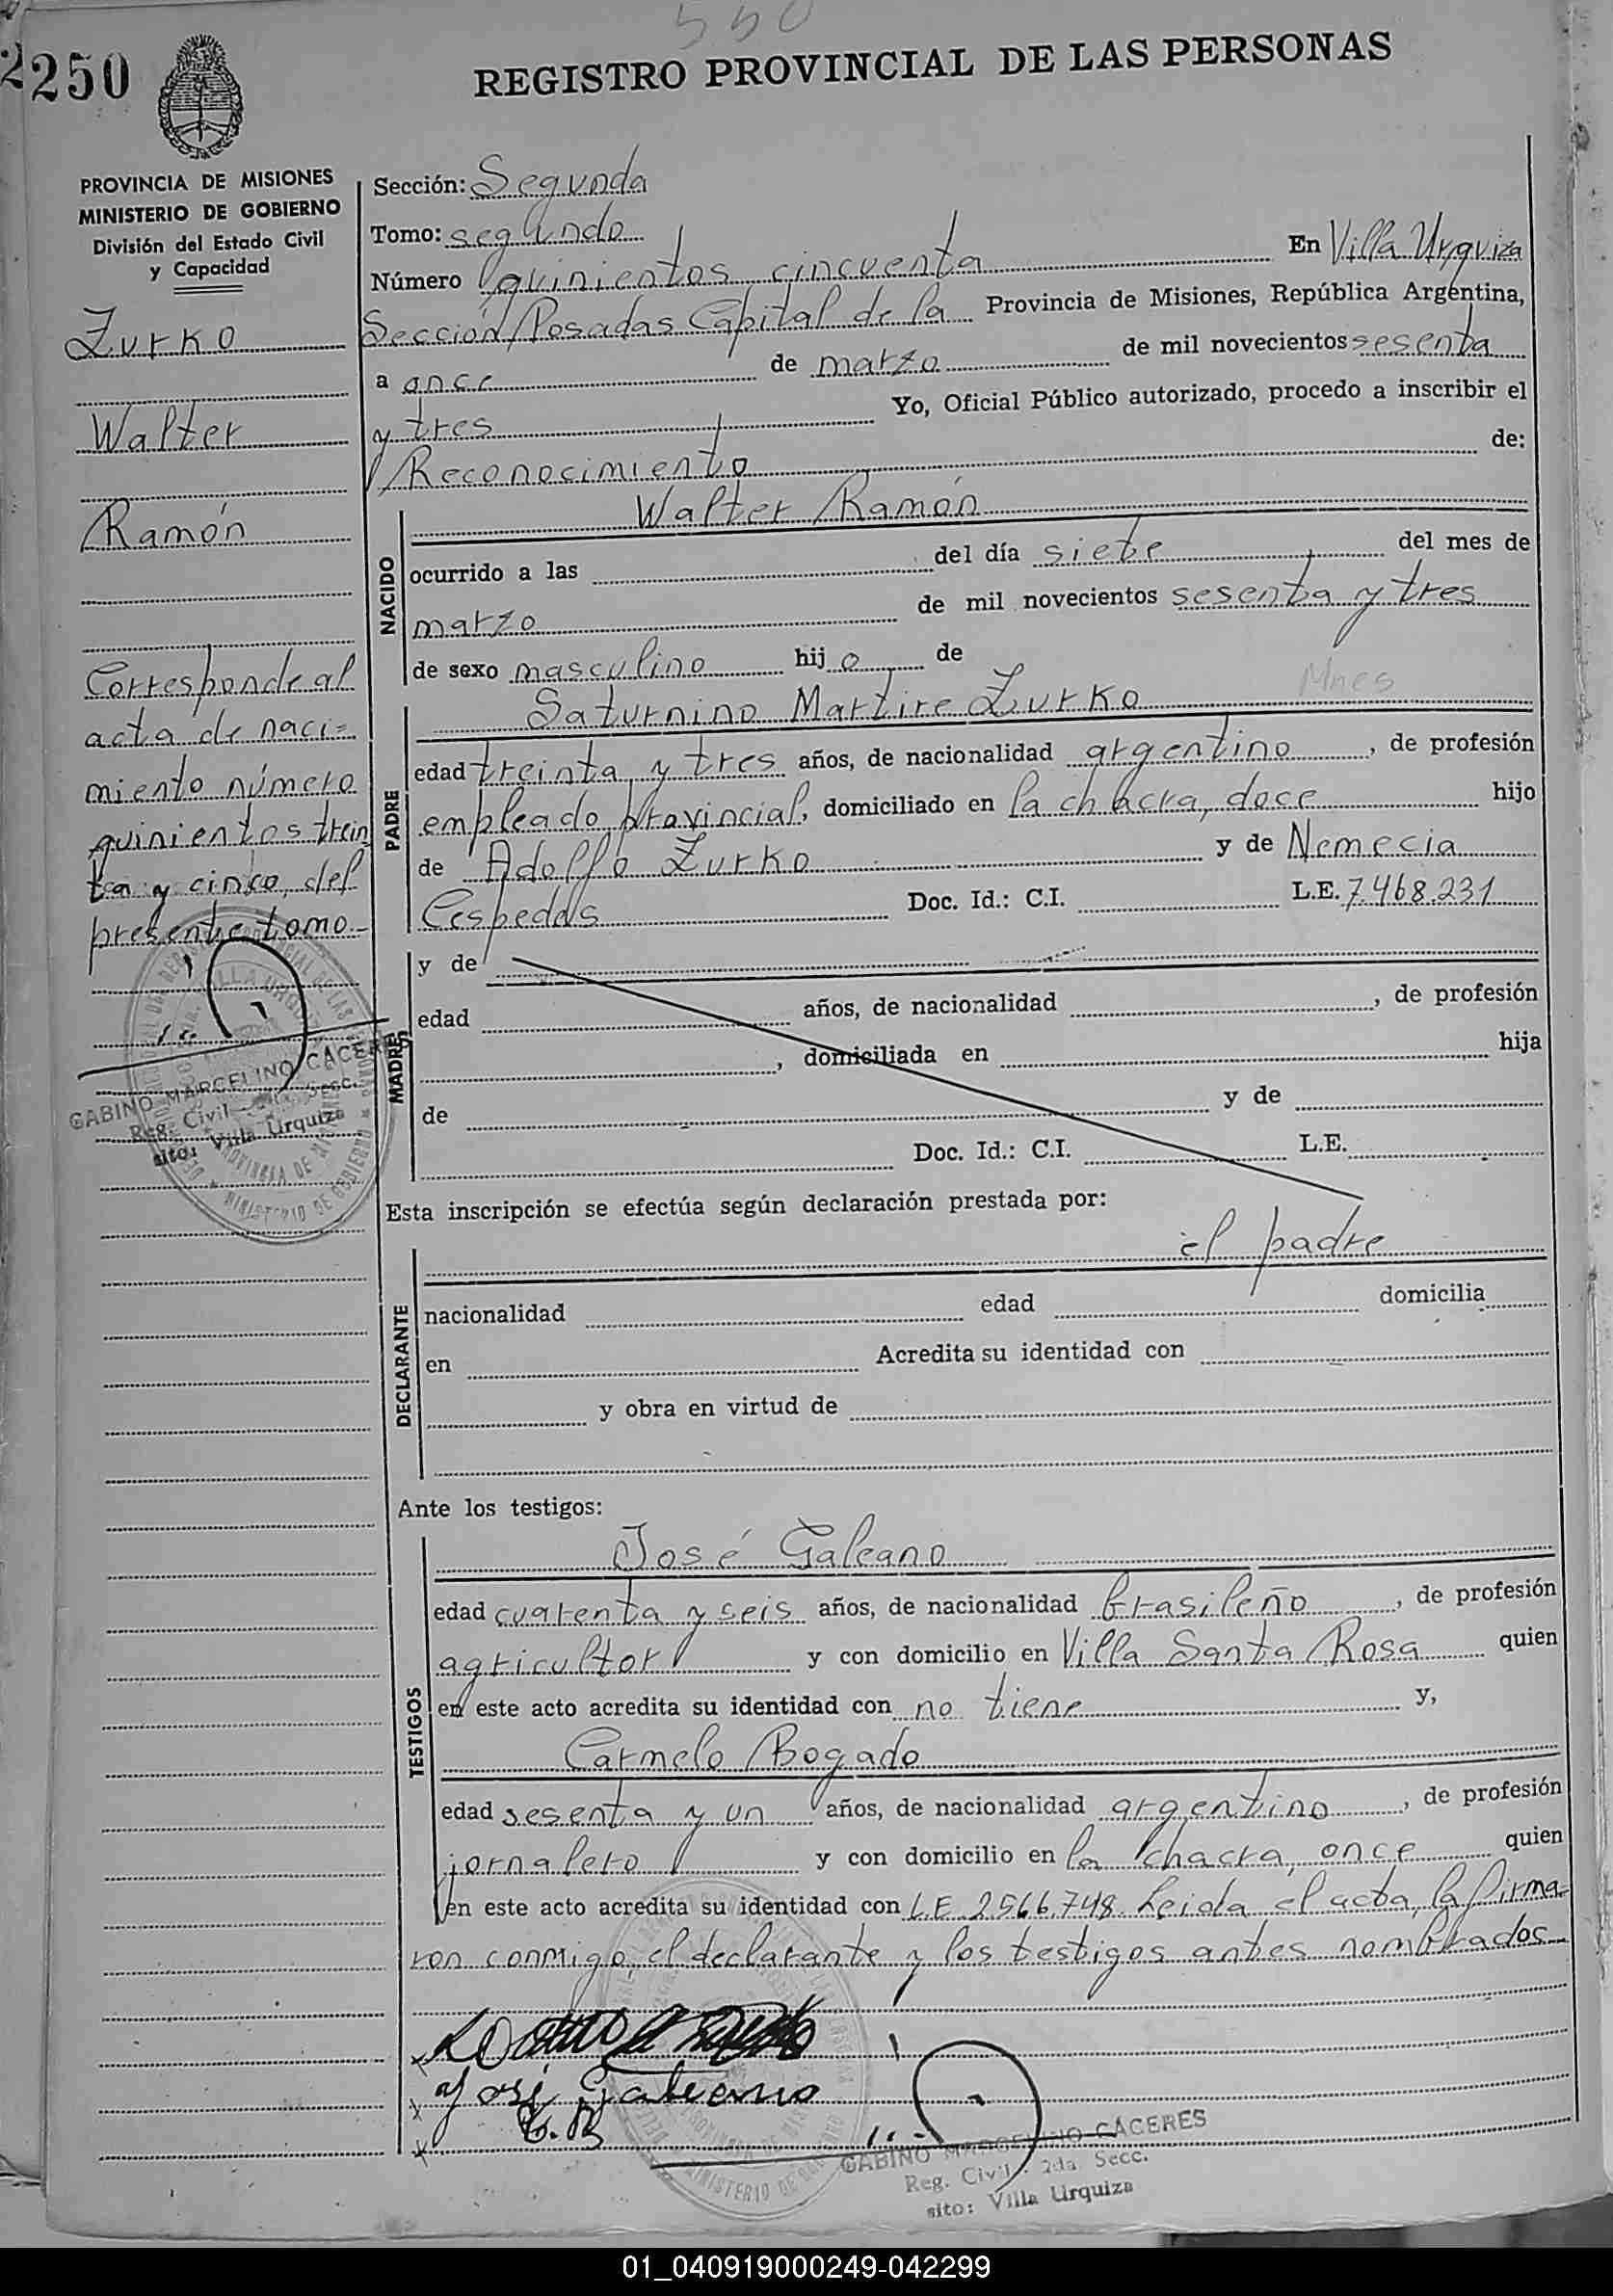 550
2250
REGISTRO PROVINCIAL DE LAS PERSONAS
PROVINCIA DE MISIONES
MINISTERIO DE GOBIERNO
División del Estado Civil
y Capacidad
Zurko
Walter
Ramón
Corresponde al
acta de naci=
miento número
quinientos trein
ta y cinco, del
presente tomo-
GABINO MARCELINO CACERES
Reg. Civil 2da. Secc.
sito: Villa Urquiza
Sección: Segunda
Tomo: segundo
Número quinientos cincuenta En Villa Urquiza
Sección Posadas Capital de la Provincia de Misiones, República Argentina,
a once de marzo de mil novecientos sesenta
y tres Yo, Oficial Público autorizado, procedo a inscribir el
Reconocimiento de:
NACIDO
Walter Ramón
ocurrido a las del día siete del mes de
marzo de mil novecientos sesenta y tres
de sexo masculino hijo de
Mnes
PADRE
Saturnino Martire Zurko
edad treinta y tres años, de nacionalidad argentino, de profesión
empleado provincial, domiciliado en la chacra, doce hijo
de Adolfo Zurko y de Nemecia
Cespedes Doc. Id.: C.I. L.E. 7.468.231
MADRE
y de
edad años, de nacionalidad , de profesión
, domiciliada en hija
de y de
Doc. Id.: C.I. L.E.
Esta inscripción se efectúa según declaración prestada por:
el padre
DECLARANTE
nacionalidad edad domicilia
en Acredita su identidad con
y obra en virtud de
Ante los testigos:
TESTIGOS
José Galeano
edad cuarenta y seis años, de nacionalidad brasileño, de profesión
agricultor y con domicilio en Villa Santa Rosa quien
en este acto acredita su identidad con no tiene y,
Carmelo Bogado
edad sesenta y un años, de nacionalidad argentino, de profesión
jornalero y con domicilio en la chacra, once quien
en este acto acredita su identidad con L.E 2.566.748. Leida el acta, la firma-
ron conmigo, el declarante y los testigos antes nombrados
José Galeano
C.B
GABINO MARCELINO CÁCERES
Reg. Civil - 2da. Secc.
sito: Villa Urquiza
01_040919000249-042299